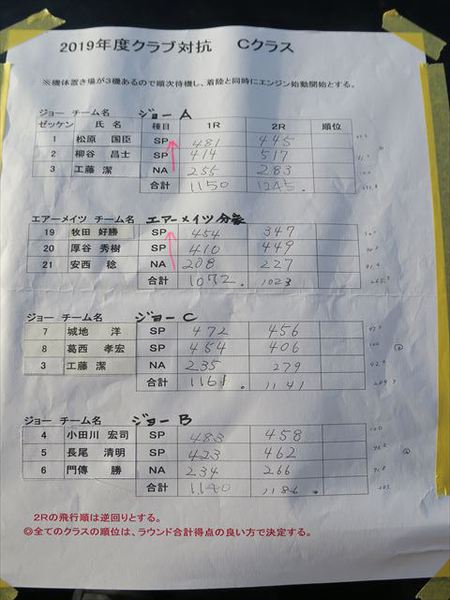 2019年度クラブ対抗 Cクラス
※機体置き場が3機あるので順次待機し、着陸と同時にエンジン始動開始とする。
ジョー チーム名 ジョーA
ゼッケン 氏名 種目 1R 2R 順位
1 松原 国臣 SP 481 445
2 柳谷 昌士 SP 414 517
3 工藤 潔 NA 255 283
合計 1150 1245
エアーメイツ チーム名 エアーメイツ
19 牧田 好勝 SP 454 347
20 厚谷 秀樹 SP 410 449
21 安西 稔 NA 208 227
合計 1072 1023
ジョー チーム名 ジョーC
7 城地 洋 SP 472 456
8 葛西 孝宏 SP 454 406
3 工藤 潔 NA 235 279
合計 1161 1141
ジョー チーム名 ジョーB
4 小田川 宏司 SP 483 458
5 長尾 清明 SP 423 462
6 門傳 勝 NA 234 266
合計 1140 1186
2Rの飛行順は逆回りとする。
◎全てのクラスの順位は、ラウンド合計得点の良い方で決定する。